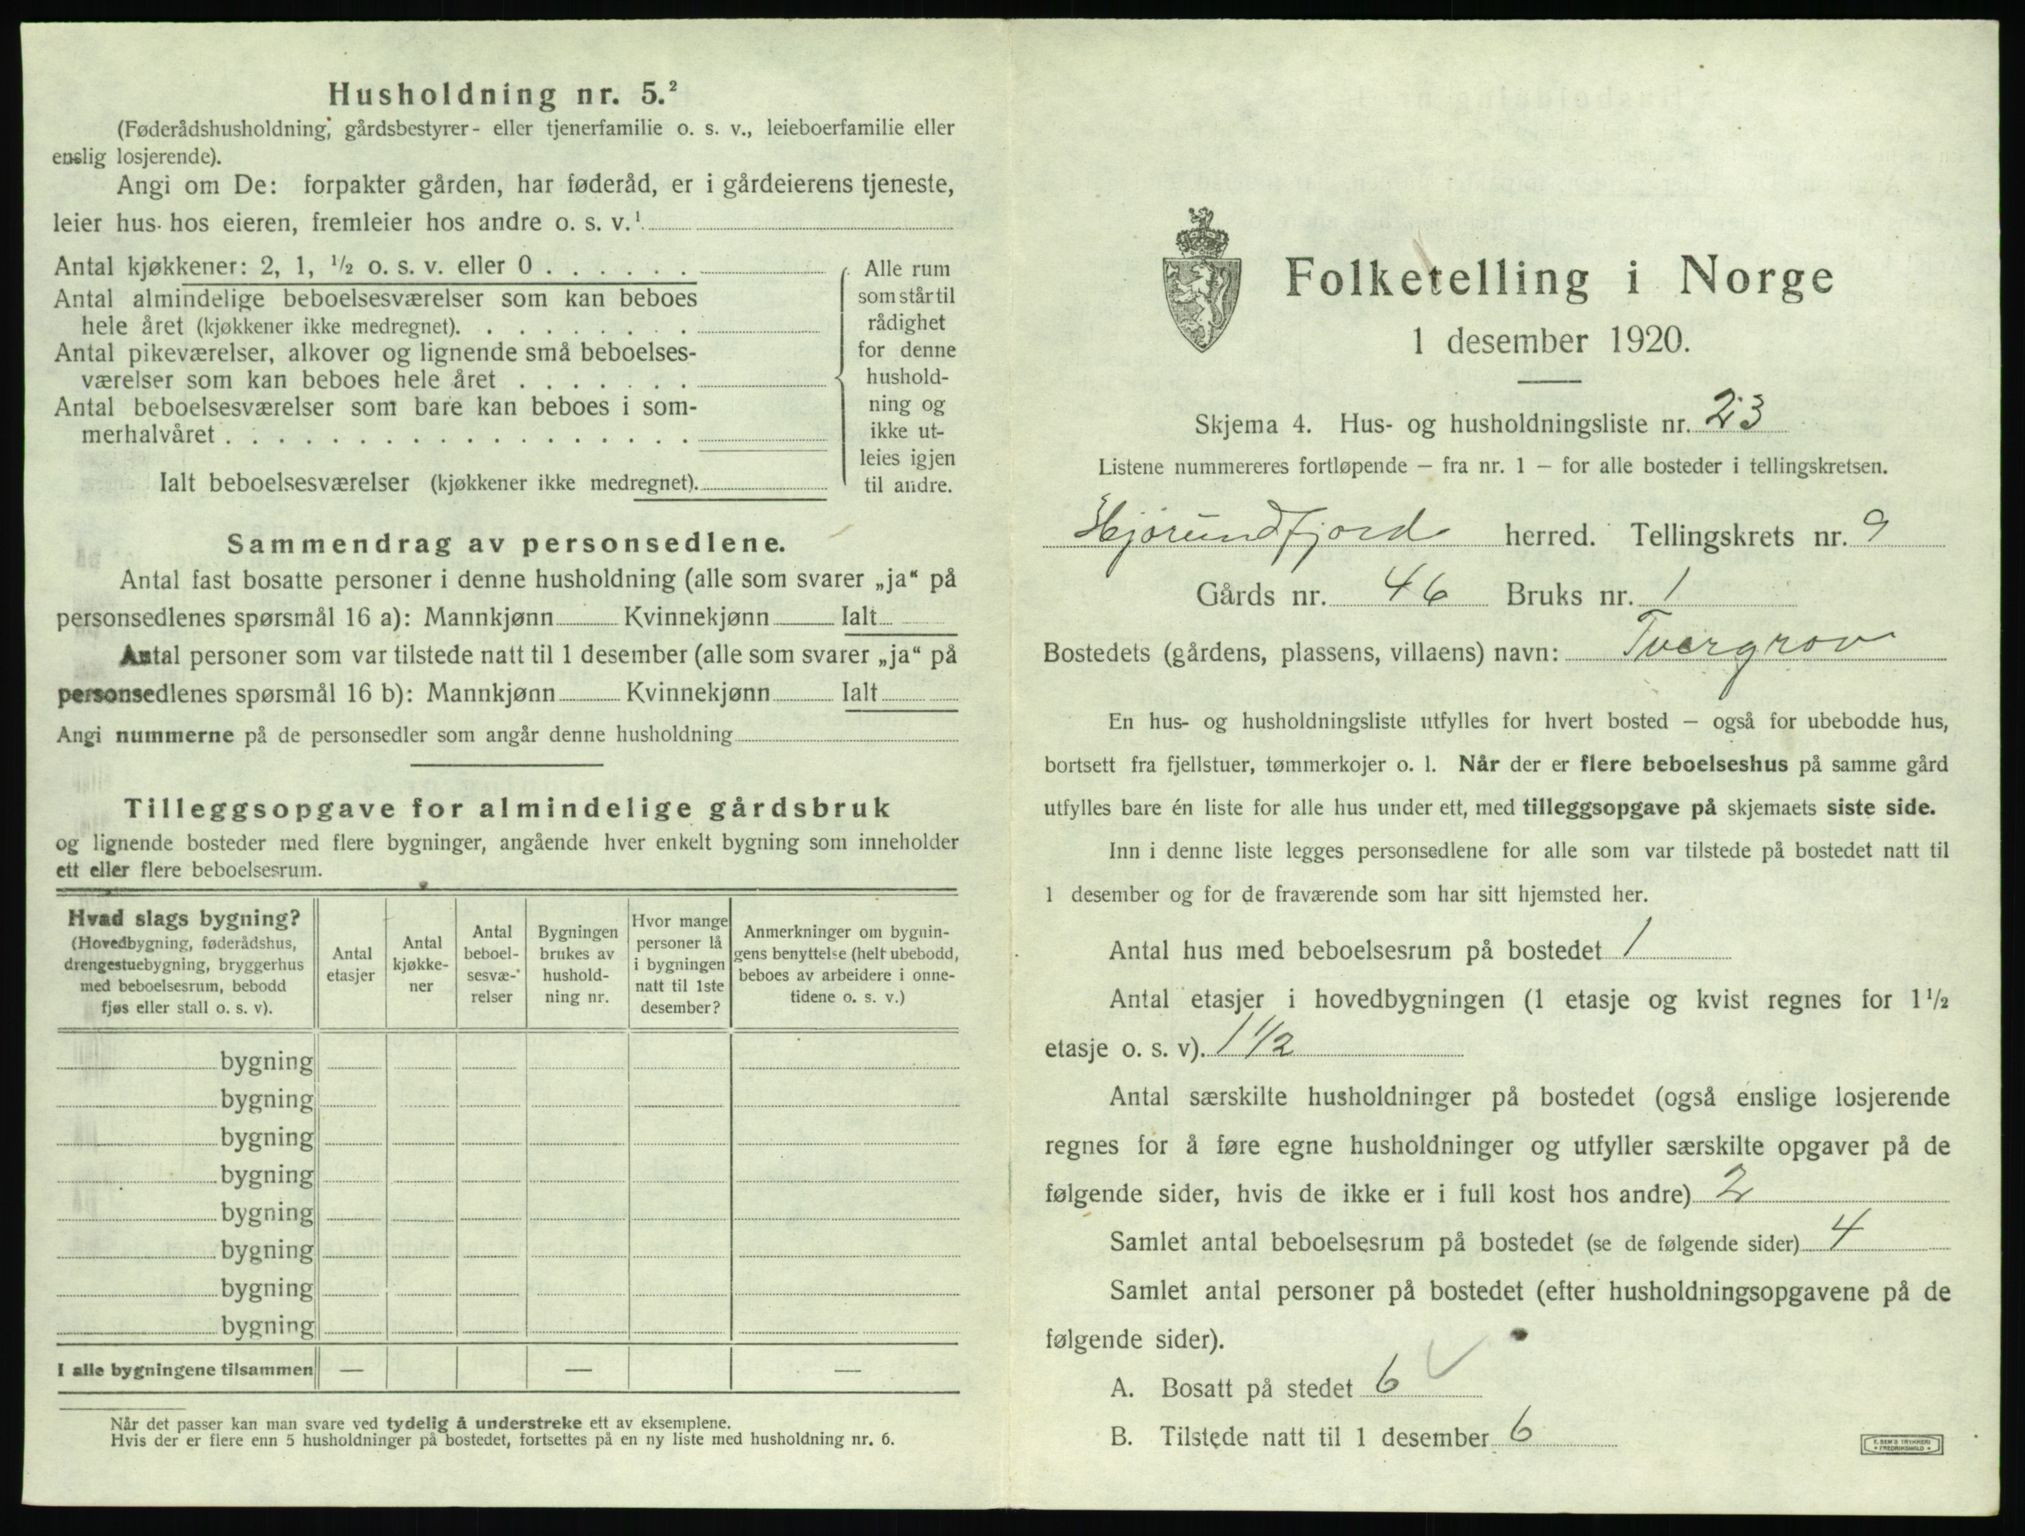 Husholdning nr. 5.²
(Føderådshusholdning, gårdsbestyrer- eller tjenerfamilie o. s. v., leieboerfamilie eller
enslig losjerende).
Angi om De: forpakter gården, har føderåd, er i gårdeierens tjeneste,
leier hus hos eieren, fremleier hos andre o. s. v.¹
Antal kjøkkener: 2, 1, ½ o. s. v. eller 0 . . . . . .
Antal almindelige beboelsesværelser som kan beboes
hele året (kjøkkener ikke medregnet). . . . . . . . .
Antal pikeværelser, alkover og lignende små beboelses-
værelser som kan beboes hele året . . . . . . .
Antal beboelsesværelser som bare kan beboes i som-
merhalvåret . . . . . . . . . . . . . . . . . .
Ialt beboelsesværelser (kjøkkener ikke medregnet).
Alle rum
som står til
rådighet
for denne
hushold-
ning og
ikke ut-
leies igjen
til andre.
Sammendrag av personsedlene.
Antal fast bosatte personer i denne husholdning (alle som svarer „ja“ på
personsedlenes spørsmål 16 a): Mannkjønn Kvinnekjønn Ialt
Antal personer som var tilstede natt til 1 desember (alle som svarer „ja“ på
personsedlenes spørsmål 16 b): Mannkjønn Kvinnekjønn Ialt
Angi nummerne på de personsedler som angår denne husholdning
Tilleggsopgave for almindelige gårdsbruk
og lignende bosteder med flere bygninger, angående hver enkelt bygning som inneholder
ett eller flere beboelsesrum.
Hvad slags bygning?
(Hovedbygning, føderådshus,
drengestuebygning, bryggerhus
med beboelsesrum, bebodd
fjøs eller stall o. s. v).
Antal
etasjer
Antal
kjøkke-
ner
Antal
beboel-
sesvæ-
relser
Bygningen
brukes av
hushold-
ning nr.
Hvor mange
personer lå
i bygningen
natt til 1ste
desember?
Anmerkninger om bygnin-
gens benyttelse (helt ubebodd,
beboes av arbeidere i onne-
tidene o. s. v.)
bygning
bygning
bygning
bygning
bygning
bygning
bygning
bygning
I alle bygningene tilsammen — — —
Når det passer kan man svare ved tydelig å understreke ett av eksemplene.
Hvis der er flere enn 5 husholdninger på bostedet, fortsettes på en ny liste med husholdning nr. 6.
Folketelling i Norge
1 desember 1920.
Skjema 4. Hus- og husholdningsliste nr. 23
Listene nummereres fortløpende – fra nr. 1 – for alle bosteder i tellingskretsen.
Hjørundfjord herred. Tellingskrets nr. 9
Gårds nr. 46 Bruks nr. 1
Bostedets (gårdens, plassens, villaens) navn: Tvergrov
En hus- og husholdningsliste utfylles for hvert bosted – også for ubebodde hus,
bortsett fra fjellstuer, tømmerkojer o. l. Når der er flere beboelseshus på samme gård
utfylles bare én liste for alle hus under ett, med tilleggsopgave på skjemaets siste side.
Inn i denne liste legges personsedlene for alle som var tilstede på bostedet natt til
1 desember og for de fraværende som har sitt hjemsted her.
Antal hus med beboelsesrum på bostedet 1
Antal etasjer i hovedbygningen (1 etasje og kvist regnes for 1½
etasje o. s. v). 1½
Antal særskilte husholdninger på bostedet (også enslige losjerende
regnes for å føre egne husholdninger og utfyller særskilte opgaver på de
følgende sider, hvis de ikke er i full kost hos andre) 2
Samlet antal beboelsesrum på bostedet (se de følgende sider) 4
Samlet antal personer på bostedet (efter husholdningsopgavene på de
følgende sider).
A. Bosatt på stedet 6
B. Tilstede natt til 1 desember 6